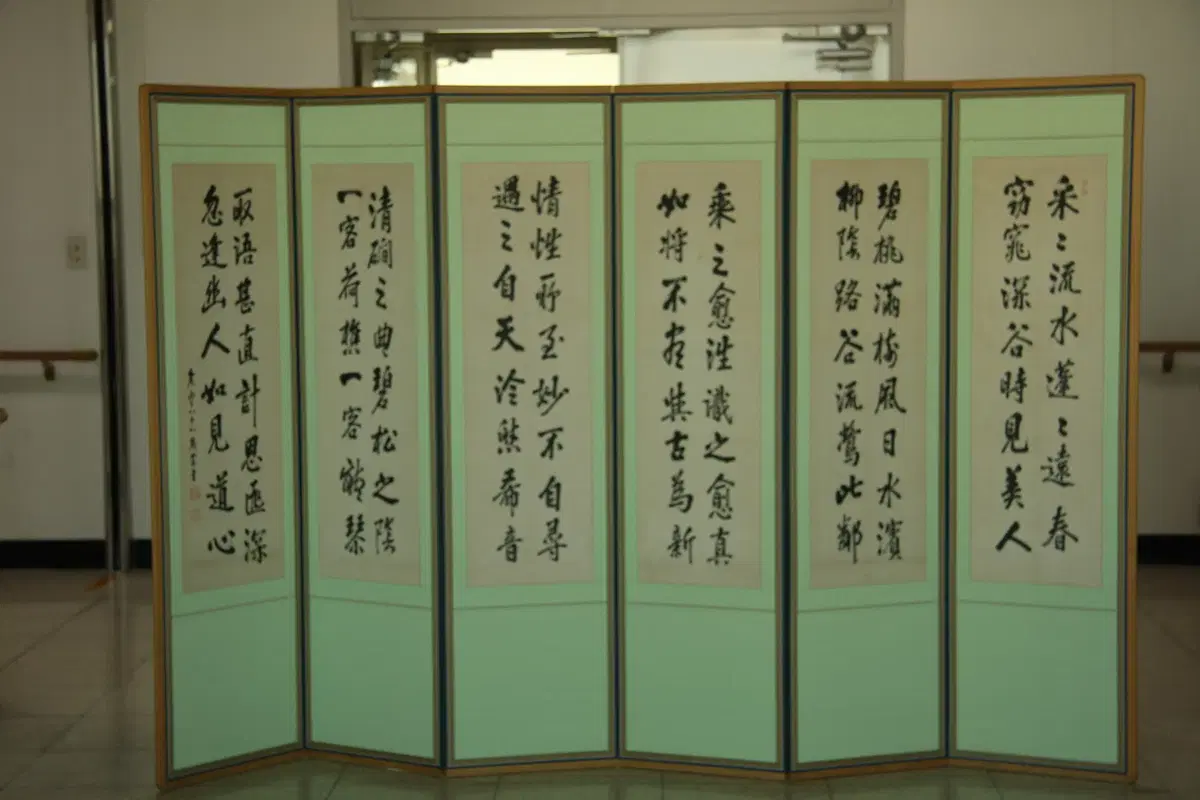 采〻流水蓬〻遠春
窈窕深谷時見美人
碧桃滿樹風日水濱
柳陰路谷流鶯比鄰
乘之愈往識之愈真
如將不盡與古為新
情性所至妙不自尋
遇之自天泠然希音
清磵之曲碧松之陰
一客荷樵一客聽琴
取語甚直計思匪深
忽逢幽人如見道心